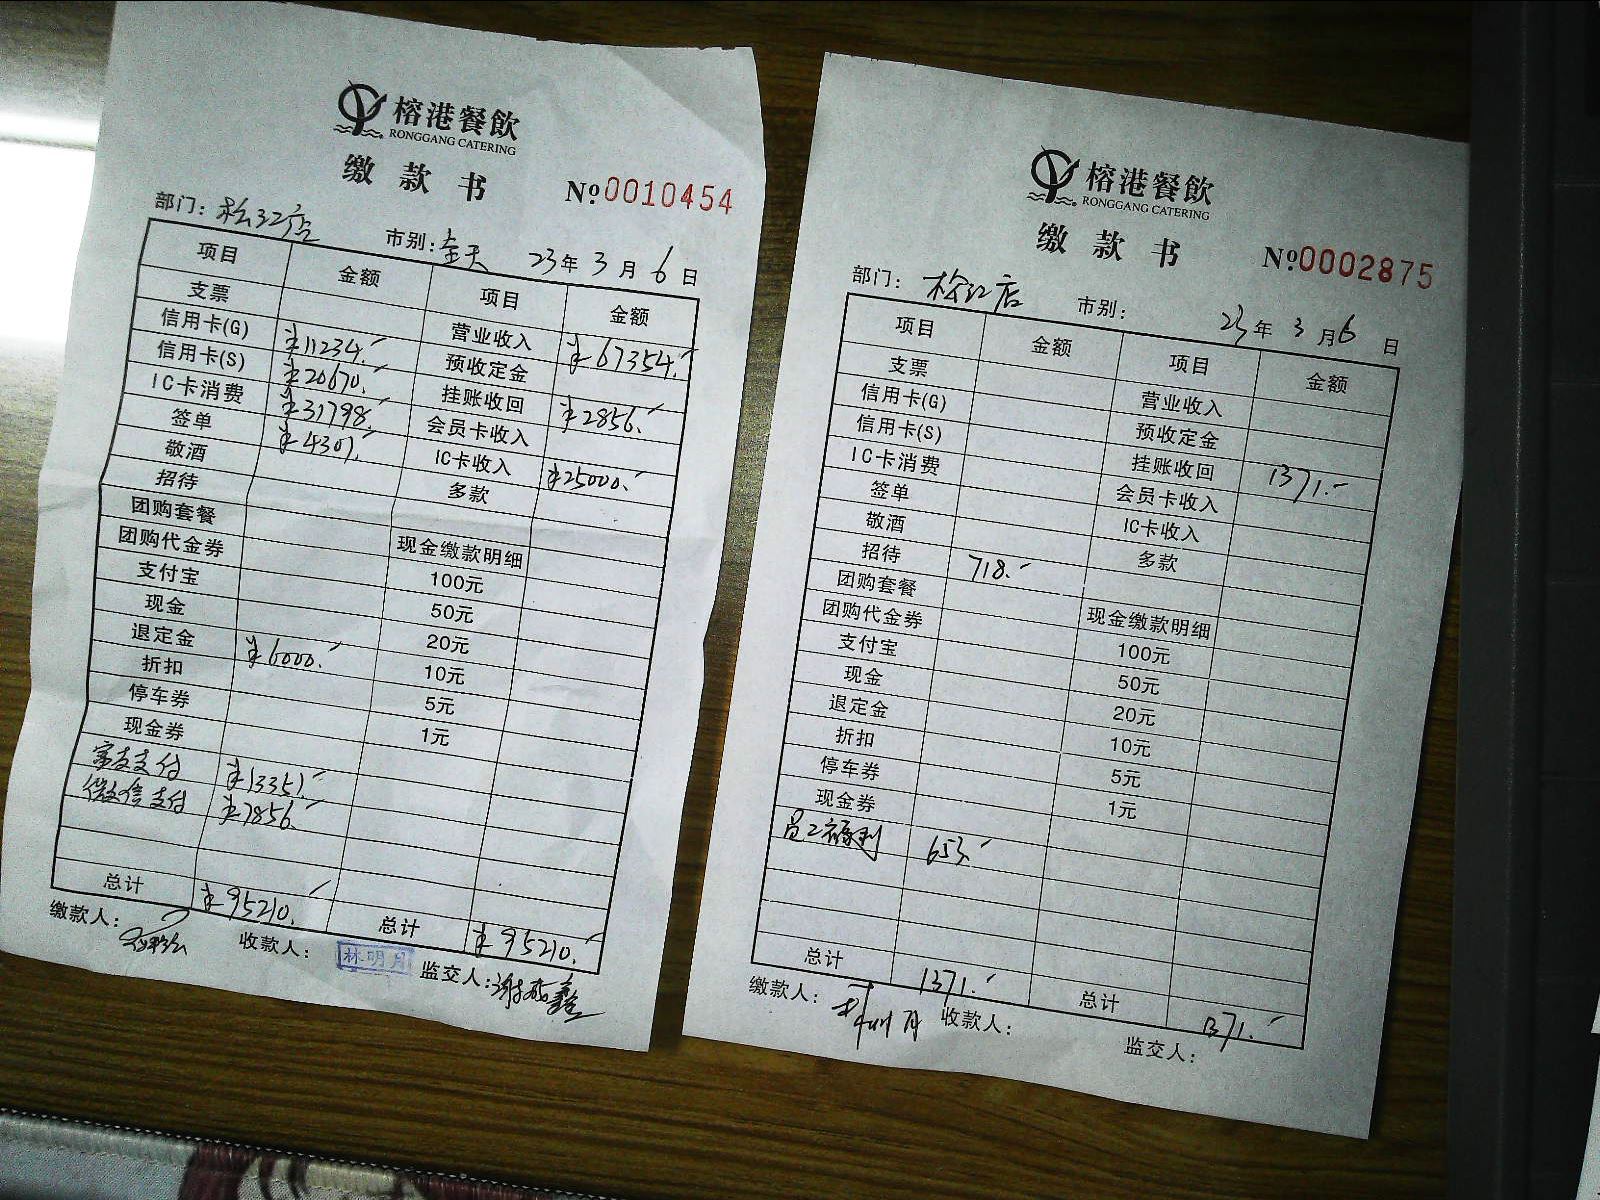 榕港餐飲
RONGGANG CATERING
缴款书 №0010454
部门: 松江店 市别: 全天 23年3月6日
项目 金额 项目 金额
支票 营业收入 ¥67354.-
信用卡(G) ¥11234.- 预收定金
信用卡(S) ¥20670.- 挂账收回 ¥2856.-
IC卡消费 ¥31798.- 会员卡收入
签单 ¥4301.- IC卡收入 ¥25000.-
敬酒 多款
招待
团购套餐 现金缴款明细
团购代金券 100元
支付宝 50元
现金 20元
退定金 ¥6000.- 10元
折扣 5元
停车券 1元
现金券
支付 ¥13351.-
微信支付 ¥7856.-
总计 ¥95210.- 总计 ¥95210.-
缴款人: 收款人: 林明月 监交人:
榕港餐飲
RONGGANG CATERING
缴款书 №0002875
部门: 松江店 市别: 23年3月6日
项目 金额 项目 金额
支票 营业收入
信用卡(G) 预收定金
信用卡(S) 挂账收回 1371.-
IC卡消费 会员卡收入
签单 IC卡收入
敬酒 多款
招待 718.-
团购套餐 现金缴款明细
团购代金券 100元
支付宝 50元
现金 20元
退定金 10元
折扣 5元
停车券 1元
现金券
员工福利 653.-
总计 1371.- 总计 1371.-
缴款人: 林明月 收款人: 监交人: